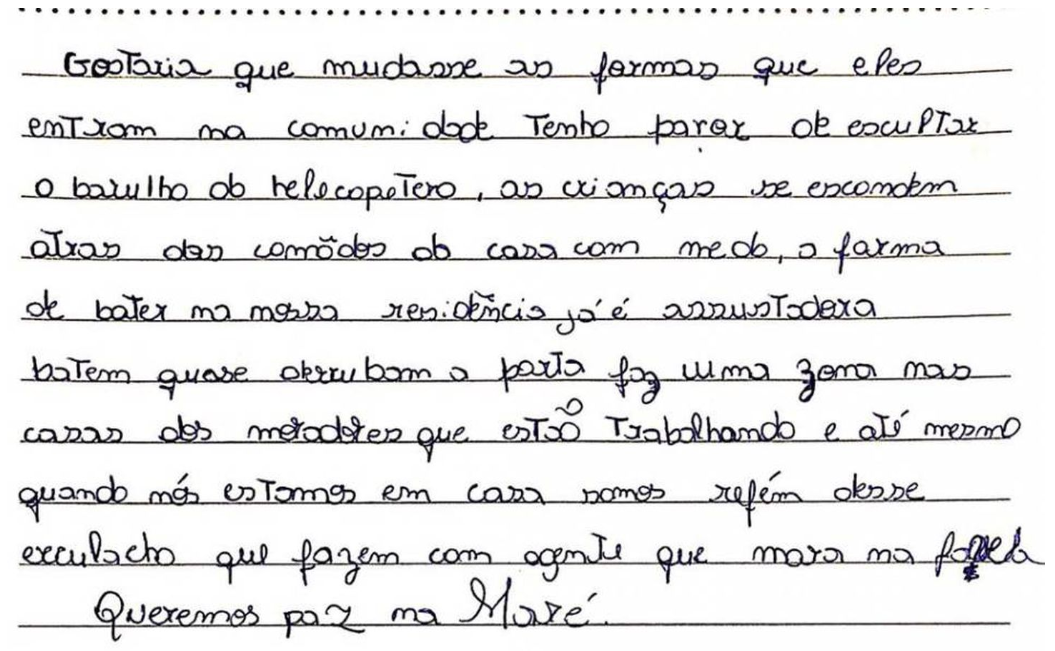 Gostaria que mudasse as formas que eles
entram na comunidade Tenho parar de escultar
o barulho do helecopetero, as crianças se escondem
atras das comôdos da casa com medo, a forma
de bater na nossa residência já é assustadora
batem quase derrubam a porta faz uma zona nas
casas dos moradores que estão Trabalhando e até mesmo
quando nós estamos em casa somos refém desse
exculacho que fazem com agente que mora na favela
Queremos paz na Maré.